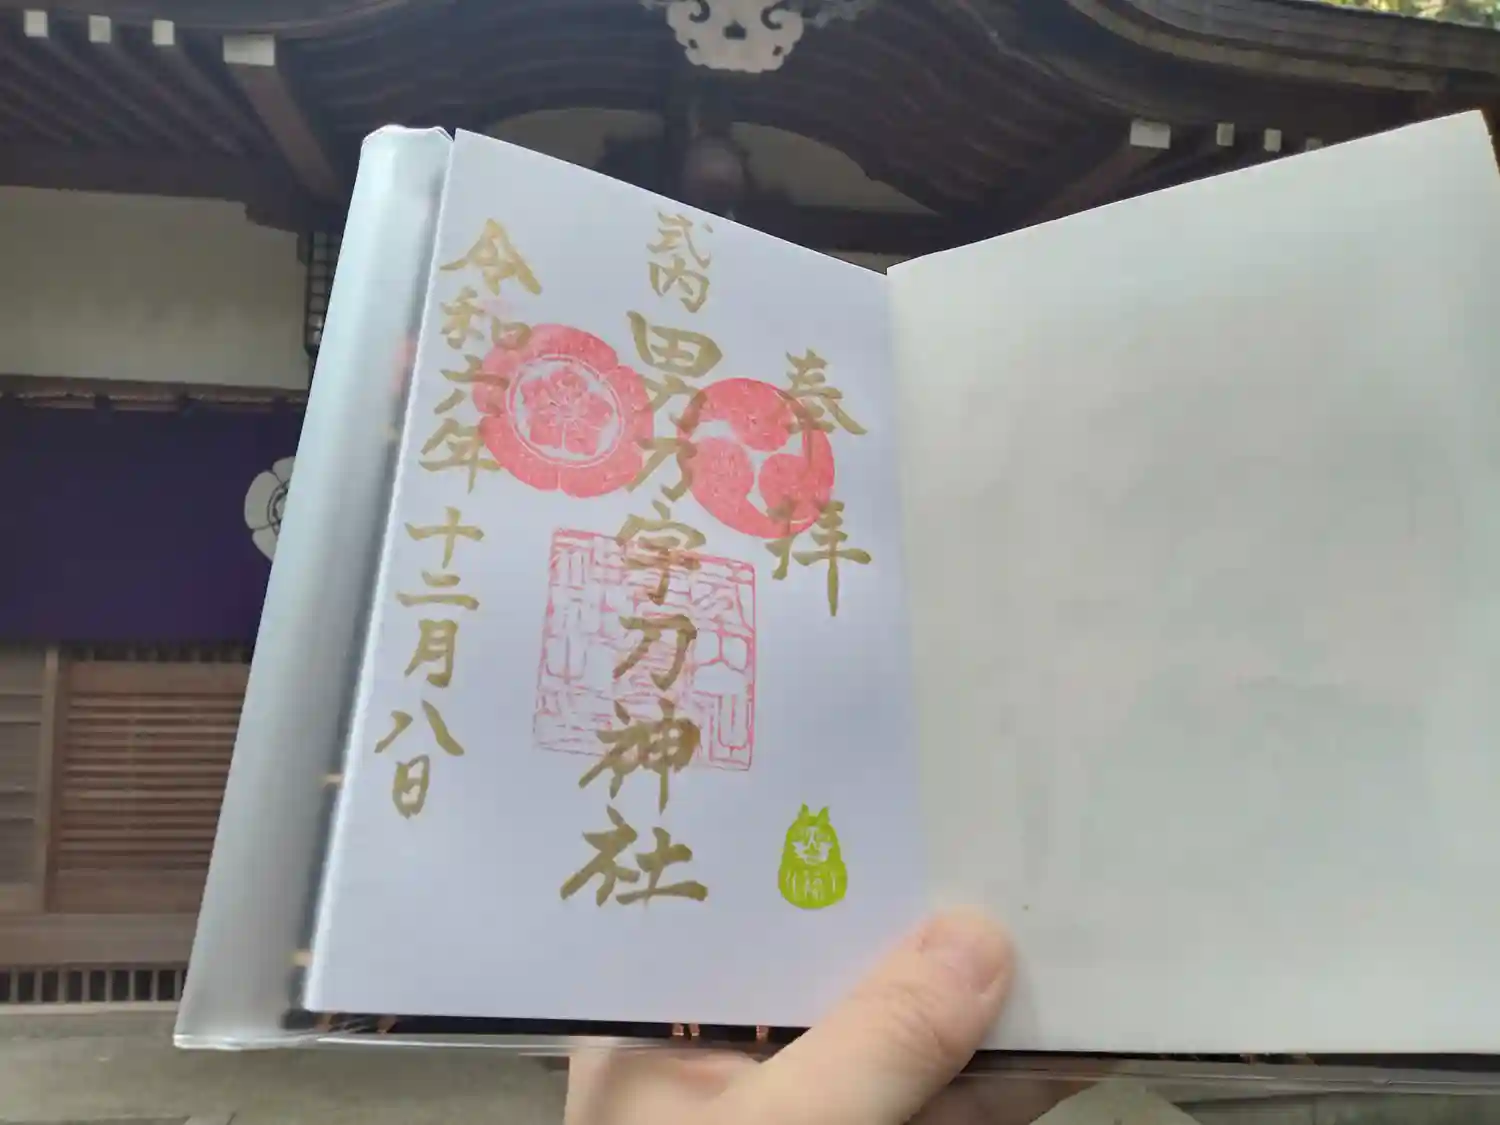 奉拝
式内
男乃宇刀神社
令和六年
十二月八日